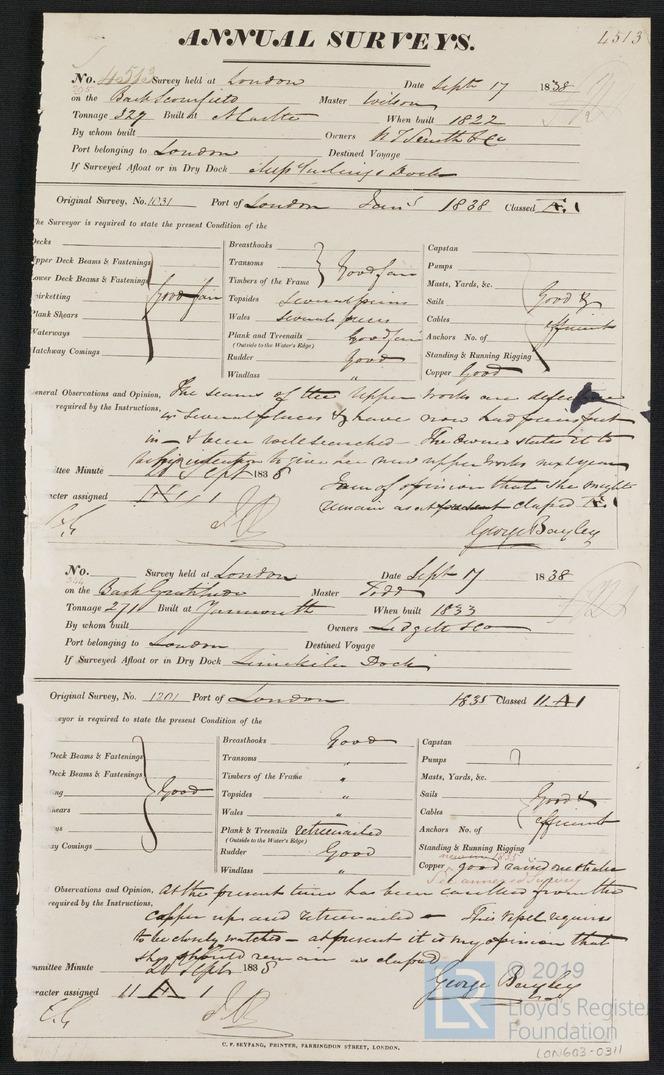 ANNUAL SURVEYS. 4513
No. 4513 Survey held at London Date Sept 17 1838
on the Bark Master Wilson
Tonnage 329 Built at When built 1822
By whom built Owners
Port belonging to London Destined Voyage
If Surveyed Afloat or in Dry Dock Dock
Original Survey, No. 1031 Port of London 1838 Classed Æ.1
The Surveyor is required to state the present Condition of the
Decks
Upper Deck Beams & Fastenings
Lower Deck Beams & Fastenings
Plank Shears
Waterways
Hatchway Comings
Breasthooks
Transoms
Timbers of the Frame
Topsides
Wales
Plank and Treenails
(Outside to the Water's Edge)
Rudder Good
Windlass "
Capstan
Pumps
Masts, Yards, &c.
Sails Good &
Cables efficient
Anchors No. of
Standing & Running Rigging
Copper Good
General Observations and Opinion, The seams of the Upper Works are defective
required by the Instructions, in several places & have now had
in & been well searched The Owner states it to
be his intention to give her new upper works next year
Committee Minute 20 Sept 1838
I am of opinion that she might
Character assigned Æ 1
remain as at present classed Æ.1
George Bayley
No. Survey held at London Date Sept 17 1838
on the Bark Gratitude Master Todd
Tonnage 271 Built at Yarmouth When built 1833
By whom built Owners Lidgett & Co
Port belonging to London Destined Voyage
If Surveyed Afloat or in Dry Dock Limekiln Dock
Original Survey, No. 1201 Port of London 1835 Classed 11.A1
veyor is required to state the present Condition of the
Deck Beams & Fastenings
Deck Beams & Fastenings
Good
Comings
Breasthooks Good
Transoms "
Timbers of the Frame "
Topsides "
Wales "
Plank & Treenails retreenailed
(Outside to the Water's Edge)
Rudder Good
Windlass "
Capstan
Pumps
Masts, Yards, &c.
Sails Good &
Cables efficient
Anchors No. of
Standing & Running Rigging
Copper good
Observations and Opinion, At the present time has been caulked from the
required by the Instructions, Copper up and retreenailed This Vessel requires
to be closely watched – at present it is my opinion that
she should remain as classed
Committee Minute 20 Sept 1838
George Bayley
Character assigned 11 A 1
C. F. SEYFANG, PRINTER, FARRINGDON STREET, LONDON.
LR
© 2019
Lloyd's Register
Foundation
LON603-0311